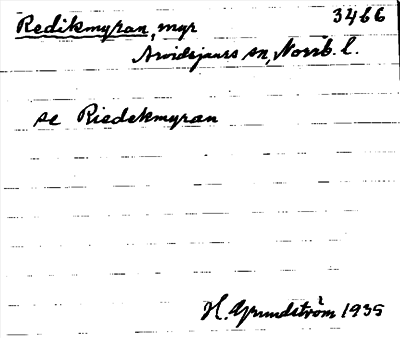 Redikmyran, myr 3466
Arvidsjaurs sn, Norrb. l.
se Riedekmyran
H. Grundström 1935